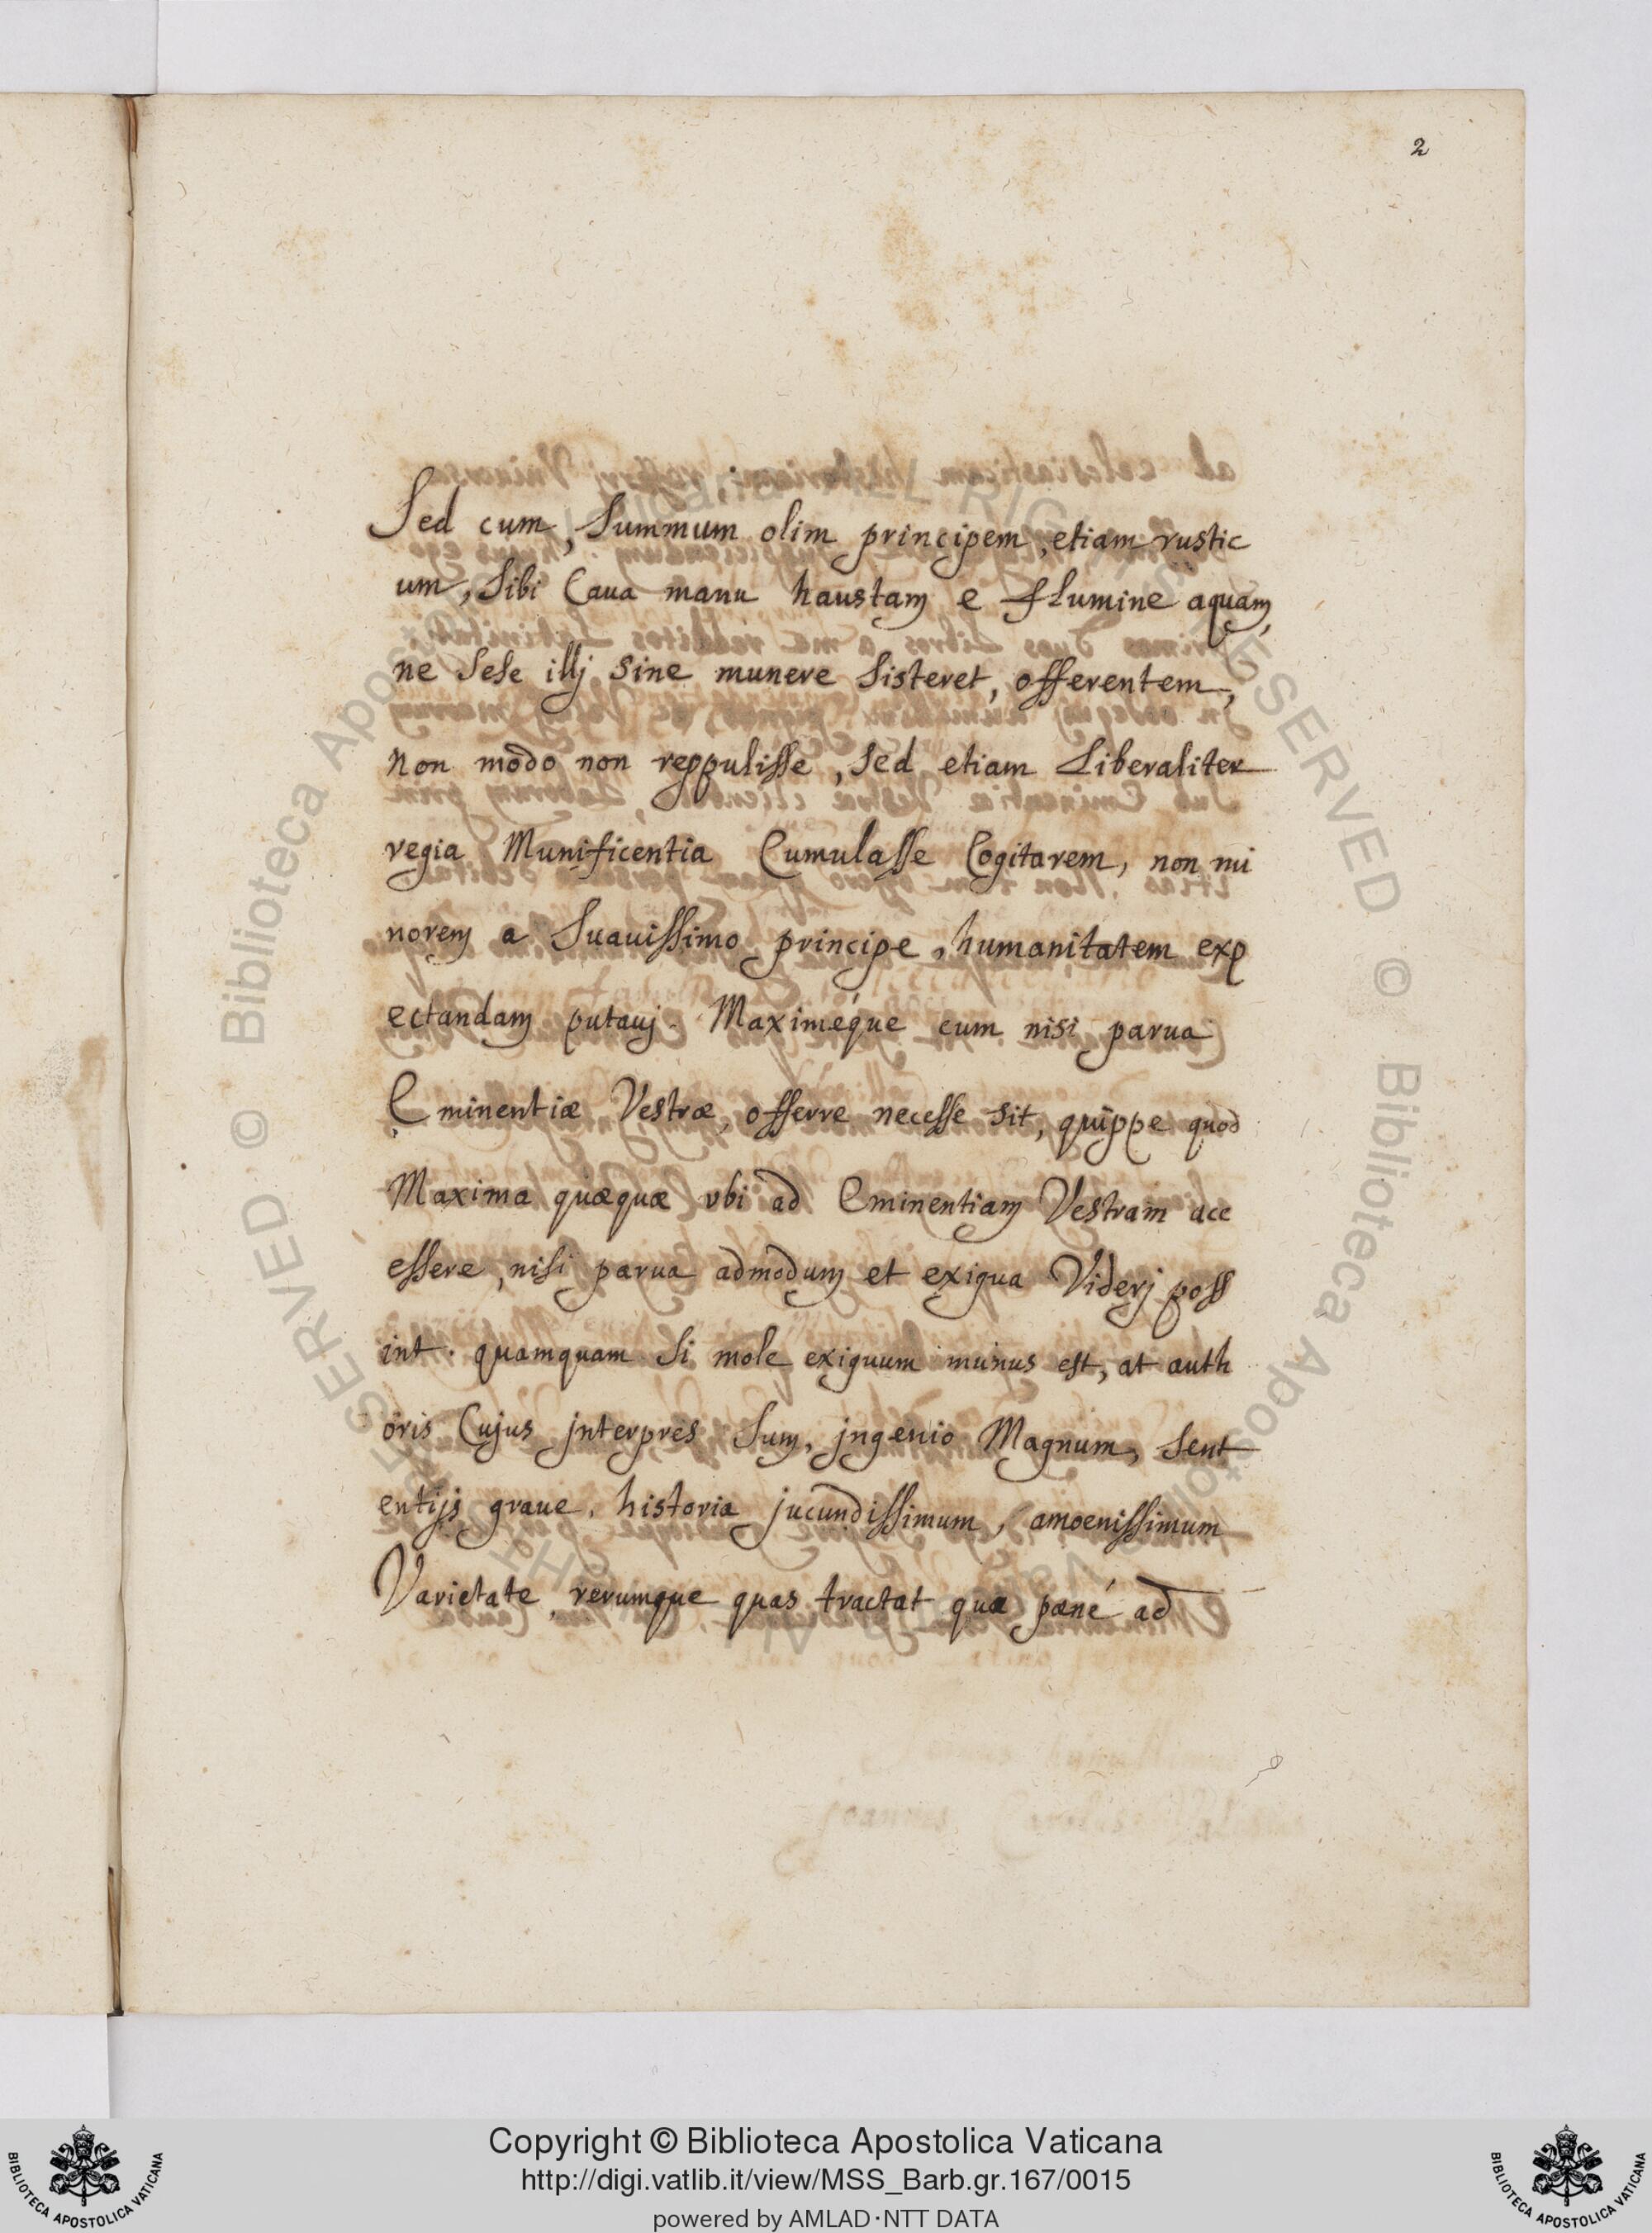 2
Sed cum, Summum olim principem, etiam rustic
um, Sibi Caua manu haustam e flumine aquam,
ne Sese illj sine munere Sisteret, offerentem,
non modo non reppulisse, Sed etiam Liberaliter
regia Munificentia Cumulasse Cogitarem, non mi
norem a Suauissimo principe, humanitatem exp
ectandam putauj. Maximéque cum nisi parua
Eminentiæ Vestræ, offerre necesse sit, quippe quod
Maxima quæquæ vbi ad Eminentiam Vestram acc
essere, nisi parua admodum et exigua Viderj poss
int. quamquam Si mole exiguum munus est, at auth
oris Cujus jnterpres Sum, jngenio Magnum, Sent
entijs graue, historia jucundissimum, amoenissimum
Varietate, rerumque quas tractat quæ pæné ad
Copyright © Biblioteca Apostolica Vaticana
http://digi.vatlib.it/view/MSS_Barb.gr.167/0015
powered by AMLAD·NTT DATA
BIBLIOTECA APOSTOLICA VATICANA
BIBLIOTECA APOSTOLICA VATICANA